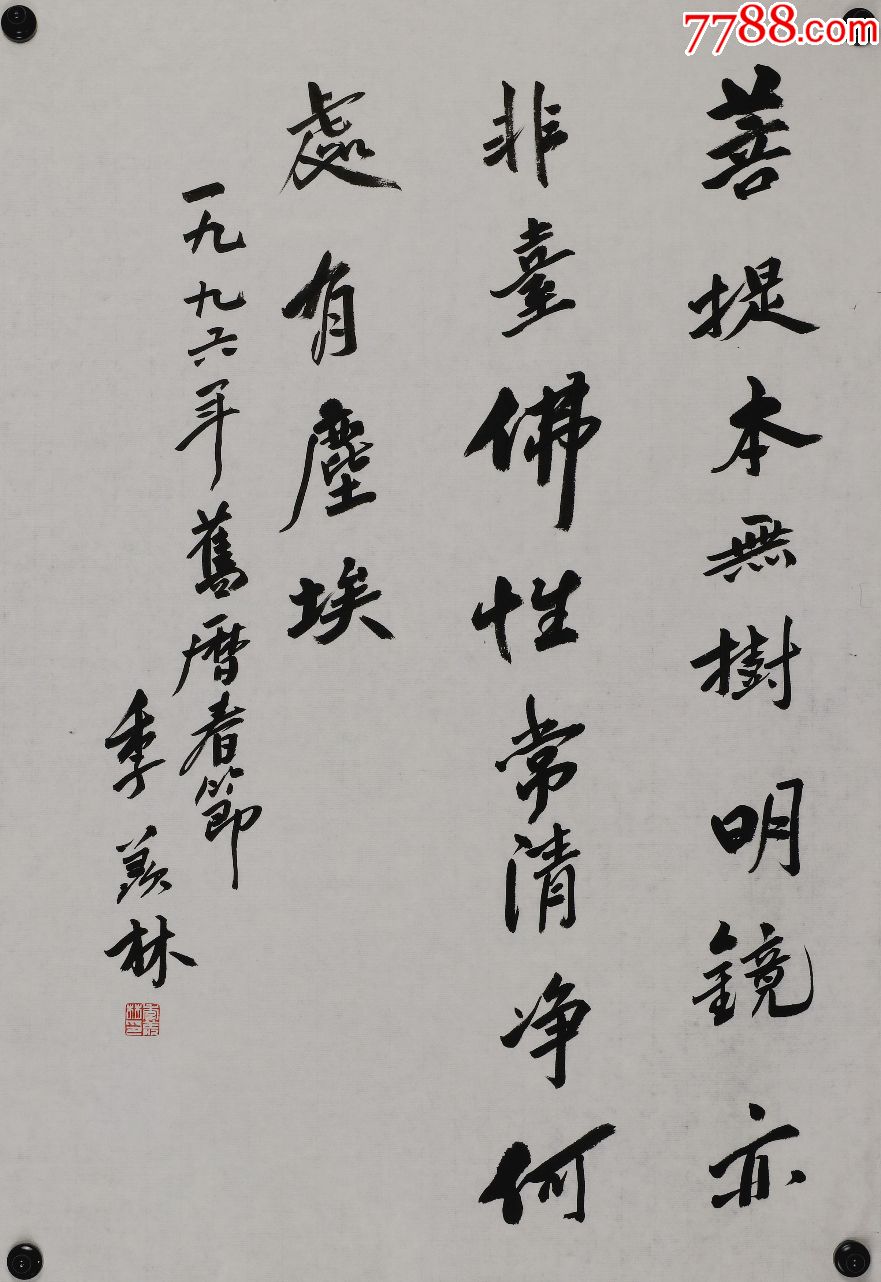 7788.com
菩提本無樹明鏡亦
非臺佛性常清净何
處有塵埃
一九九六年舊曆春節
季羨林